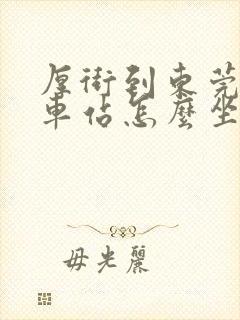 厚街到東莞
車站怎麼坐
毋光麗